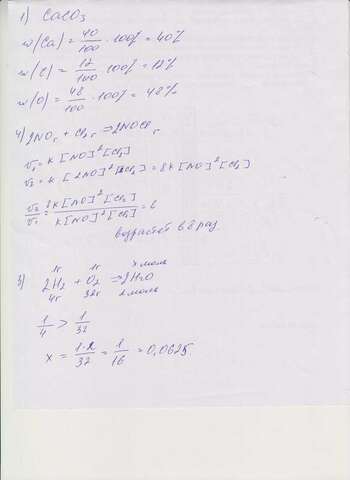 1) CaCO₃
w(Ca) = 40/100 · 100% = 40%
w(C) = 12/100 · 100% = 12%
w(O) = 48/100 · 100% = 48%
4) 2NOг + Cl₂г → 2NOClг
v₁ = k [NO]² [Cl₂]
v₂ = k [2NO]² [2Cl₂] = 8k [NO]² [Cl₂]
v₂/v₁ = 8k[NO]² [Cl₂] / k[NO]² [Cl₂] = 8
возрастёт в 8 раз.
1г 1г x моль
3) 2H₂ + O₂ → 2H₂O
4г 32г 2 моль
1/4 > 1/32
x = 1·2/32 = 1/16 = 0,0625